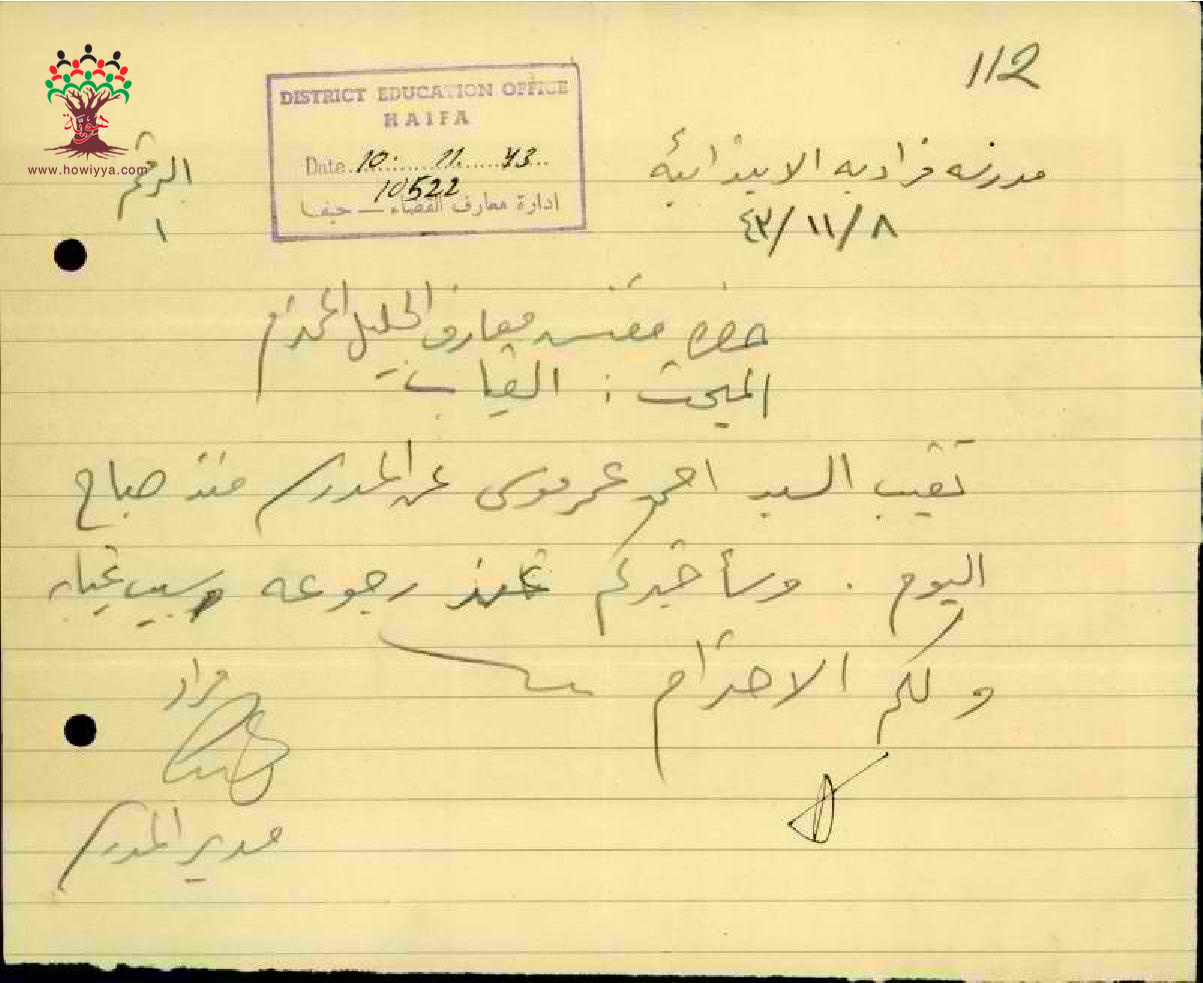 112
DISTRICT EDUCATION OFFICE
HAIFA
Date 10. 11. 43
10522
ادارة معارف القضاء — حيفا
www.howiyya.com
هوية
مدرسة فراديه الابتدائية
الرقم
٤٣/١١/٨
١
حضرة مفتش معارف الجليل المحترم
المبحث : الغياب
تغيب السيد احمد عمر موسى عن المدرسة منذ صباح
اليوم . وسأخبركم عند رجوعه وسبب غيابه
ولكم الاحترام
مراد
مدير المدرسة